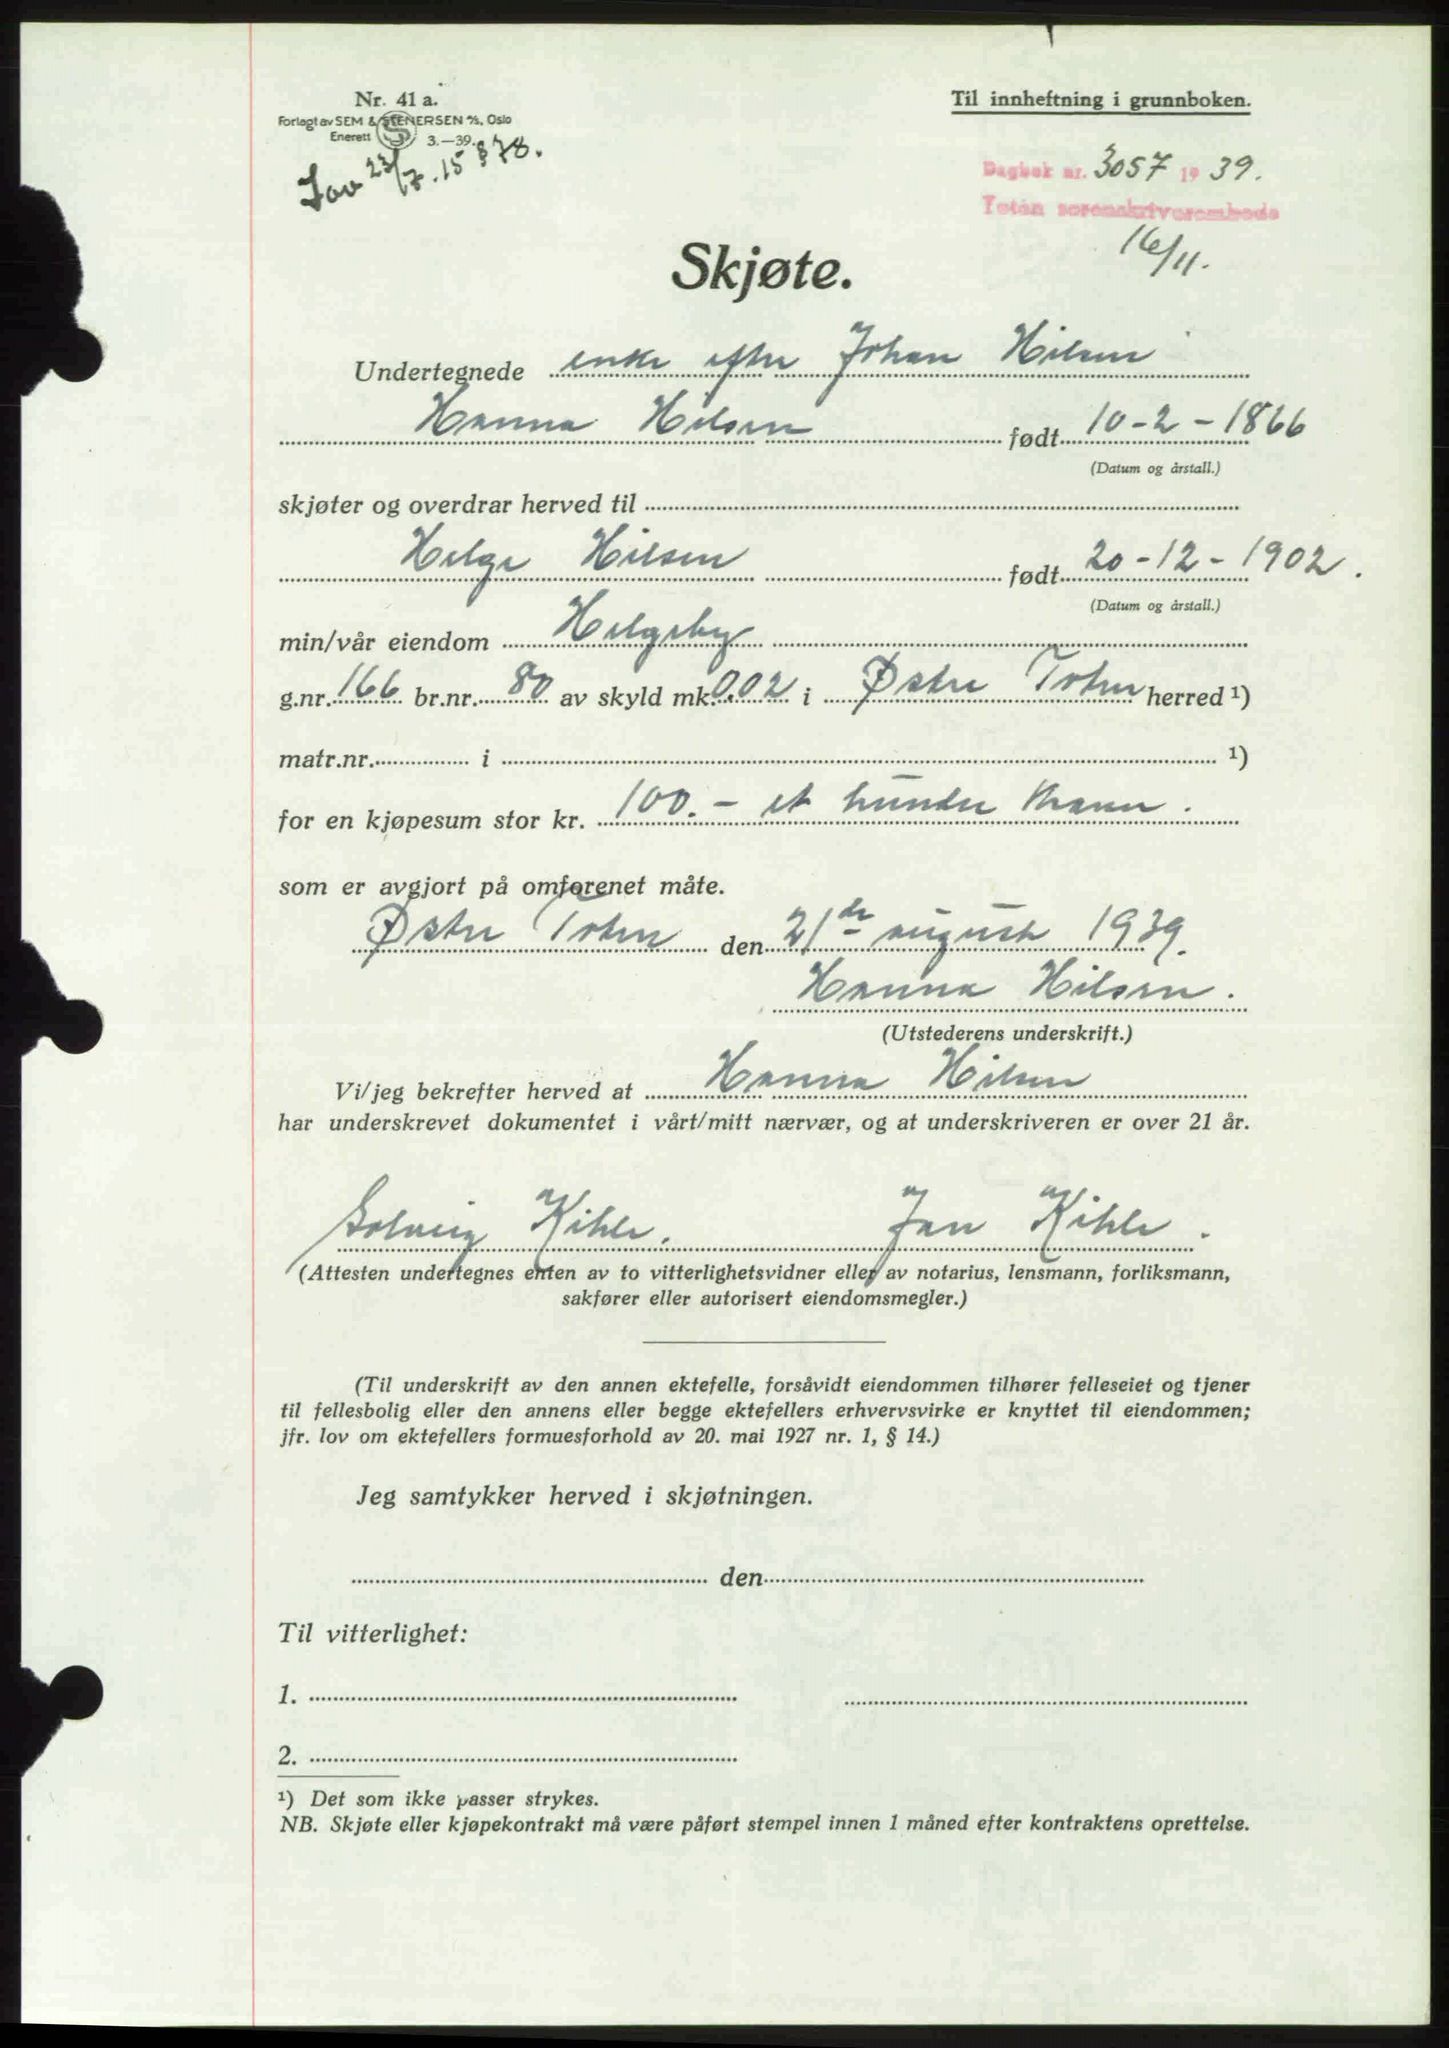 Nr. 41 a.
Forlagt av SEM & STENERSEN A/S, Oslo
Enerett S 3.—39.
Lov 23/7. 15 § 78.
Til innheftning i grunnboken.
Dagbok nr. 3057 1939.
Toten sorenskriverembede
16/11.
Skjøte.
Undertegnede enke efter Johan Hilsen
Hanna Hilsen født 10-2-1866
(Datum og årstall.)
skjøter og overdrar herved til
Helge Hilsen født 20-12-1902.
(Datum og årstall.)
min/vår eiendom Helgeby
g.nr. 166 br.nr. 80 av skyld mk. 0.02 i Østre Toten herred ¹)
matr.nr. i ¹)
for en kjøpesum stor kr. 100.- et hundre kroner.
som er avgjort på omforenet måte.
Østre Toten den 21de august 1939.
Hanna Hilsen.
(Utstederens underskrift.)
Vi/jeg bekrefter herved at Hanna Hilsen
har underskrevet dokumentet i vårt/mitt nærvær, og at underskriveren er over 21 år.
Solveig Kihle. Jan Kihle.
(Attesten undertegnes enten av to vitterlighetsvidner eller av notarius, lensmann, forliksmann,
sakfører eller autorisert eiendomsmegler.)
(Til underskrift av den annen ektefelle, forsåvidt eiendommen tilhører felleseiet og tjener
til fellesbolig eller den annens eller begge ektefellers erhvervsvirke er knyttet til eiendommen;
jfr. lov om ektefellers formuesforhold av 20. mai 1927 nr. 1, § 14.)
Jeg samtykker herved i skjøtningen.
den
Til vitterlighet:
1.
2.
¹) Det som ikke passer strykes.
NB. Skjøte eller kjøpekontrakt må være påført stempel innen 1 måned efter kontraktens oprettelse.